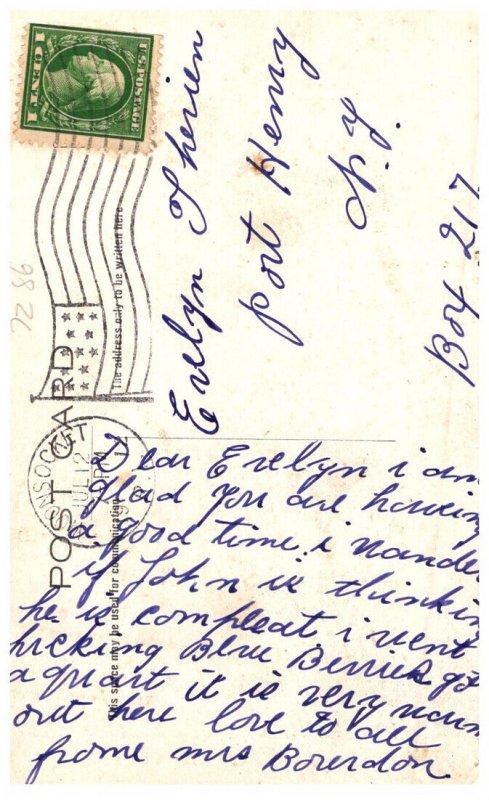 U.S. POSTAGE
1 CENT 1
POST CARD
The address only to be written here
This space may be used for communication
JUL 12
PM
Evelyn Therien
Port Henry
N.Y.
Box 217
Dear Evelyn i am
glad you are haveing
a good time. i wander
if John is thinkin
he is compleat i vent
hicking Blue Berries got
a quart it is very warm
out here love to all
frome mrs Bourdon
72 86